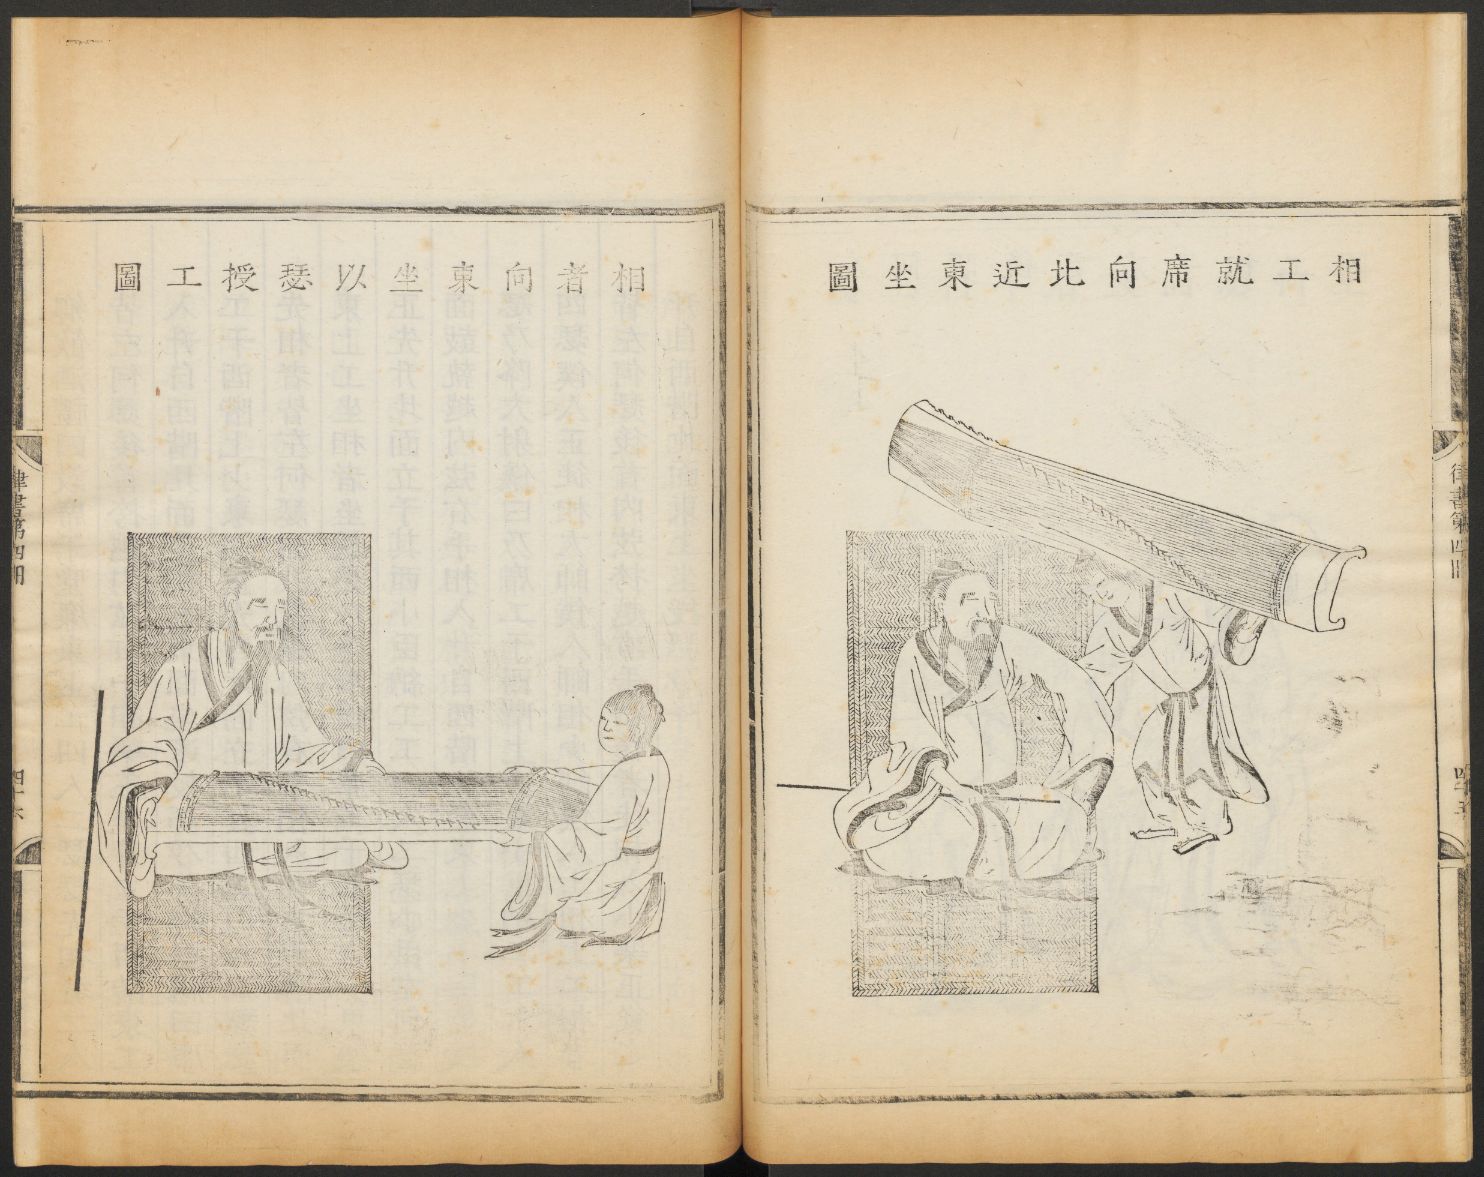 相工就席向北近東坐圖
律書第四冊
四十五
相者向東坐以瑟授工圖
律書第四冊
四十六